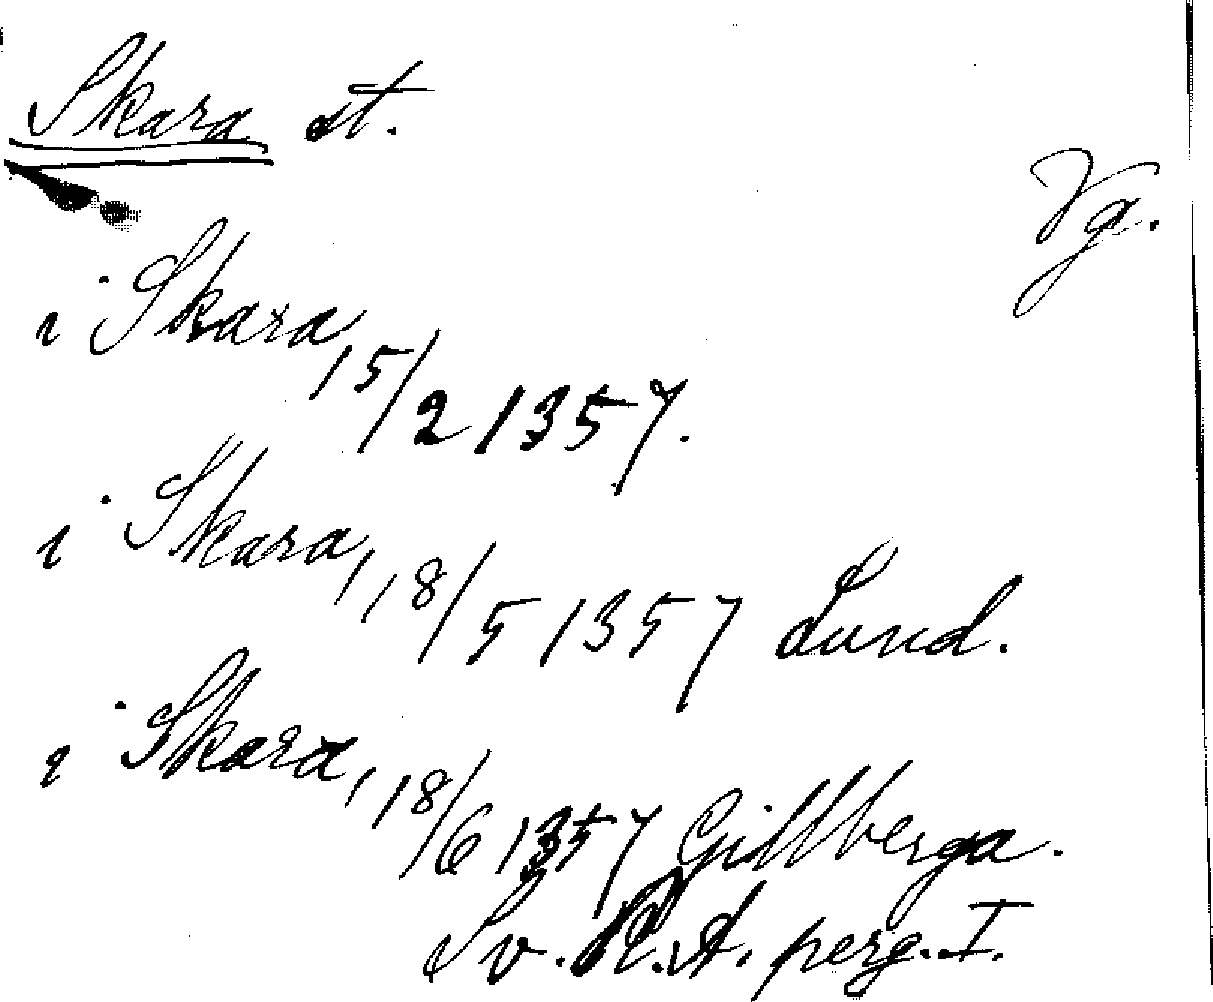 Skara st.
Vg.
i Skara 15/2 1357.
i Skara, 18/5 1357 Lund.
i Skara, 18/6 1357 Gillberga.
Sv. R. A. perg. I.